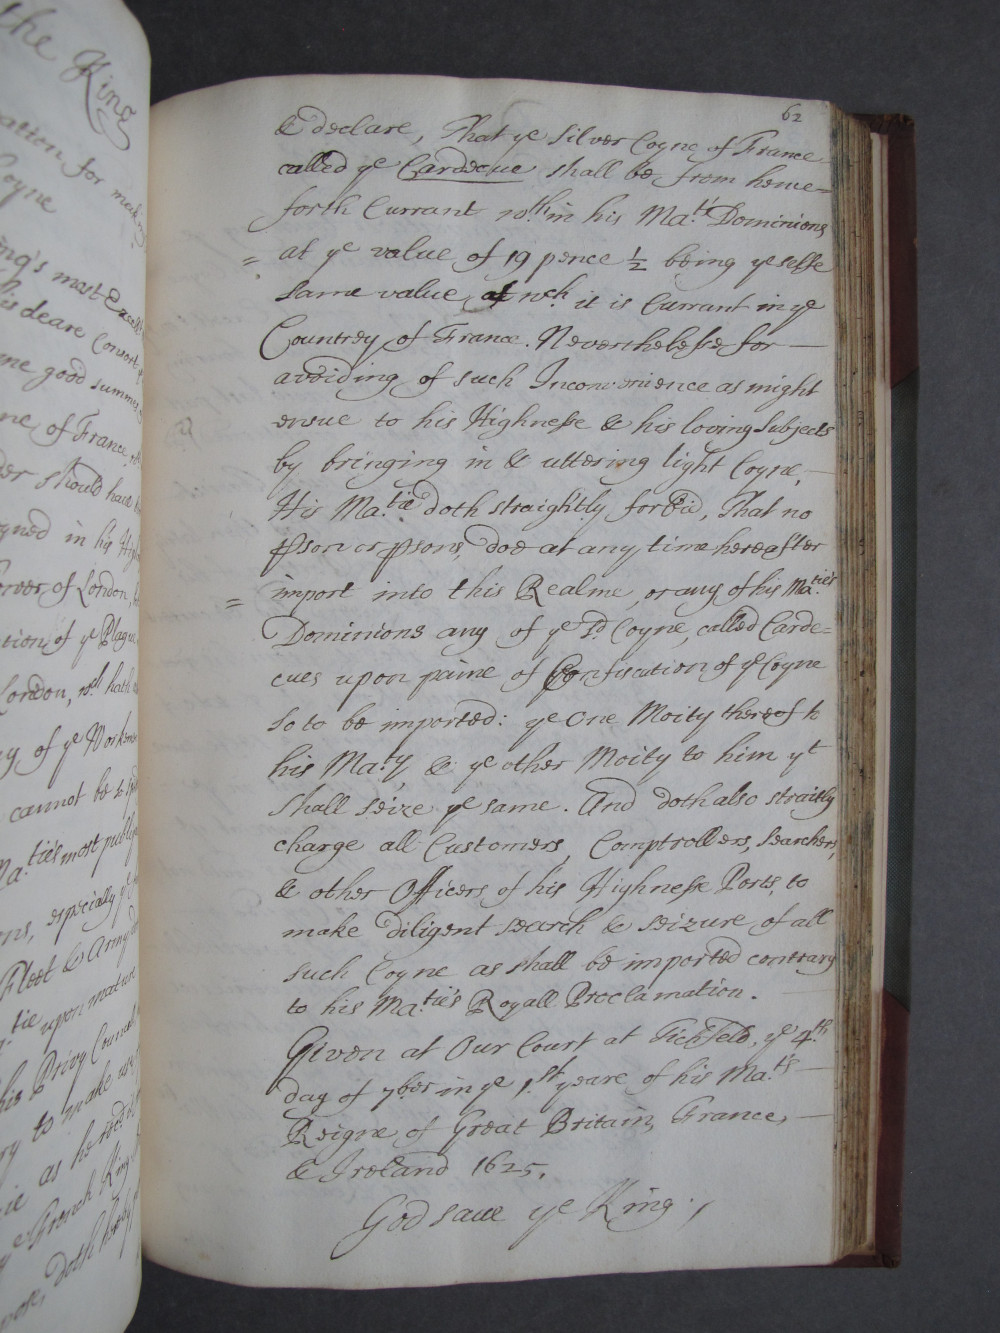 the King
ation for making
Coyne
ing's most Excell
is deare Consort
me good summe
ne of France,
der should have
yned in his High
ties of London,
tion of ye Plague
London, wch hath
ay of ye Workme
cannot be
Ma.ties most public
ns, especially ye
Fleet & Army
tie upon mature
his Privy Council
ry to make use
ie as he
ye French King
doth hereby
62
& declare, That ye Silver Coyne of France
called ye Cardecue shall be from hence=
forth Currant wth in his Ma.ts Dominions
= at ye value of 19 pence ½ being ye selfe
same value at wch it is Currant in ye
Countrey of France. Neverthelesse for —
avoiding of such Inconvenience as might
ensue to his Highnesse & his loving Subjects
by bringing in & uttering light Coyne, —
His Ma.tie doth straightly forbid, That no
pson or psons, doe at any time hereafter
= import into this Realme, or any of his Ma.tie's
Dominions any of ye sd. Coyne, called Carde=
cues upon paine of Confiscation of ye Coyne
so to be imported: ye One Moity thereof to
his Ma.ty & ye other Moity to him yt
shall seize ye same. And doth also straitly
charge all Customers, Comptrollers, Searchers,
& other Officers of his Highnesse Ports, to
make diligent search & seizure of all
such Coyne as shall be imported contrary
to his Ma.tie's Royall Proclamation. —
Given at Our Court at Tichfeld, ye 4.th
day of 7ber in ye 1.st yeare of his Ma.ts —
Reigne of Great Britain, France, —
& Ireland 1625.
God save ye King.